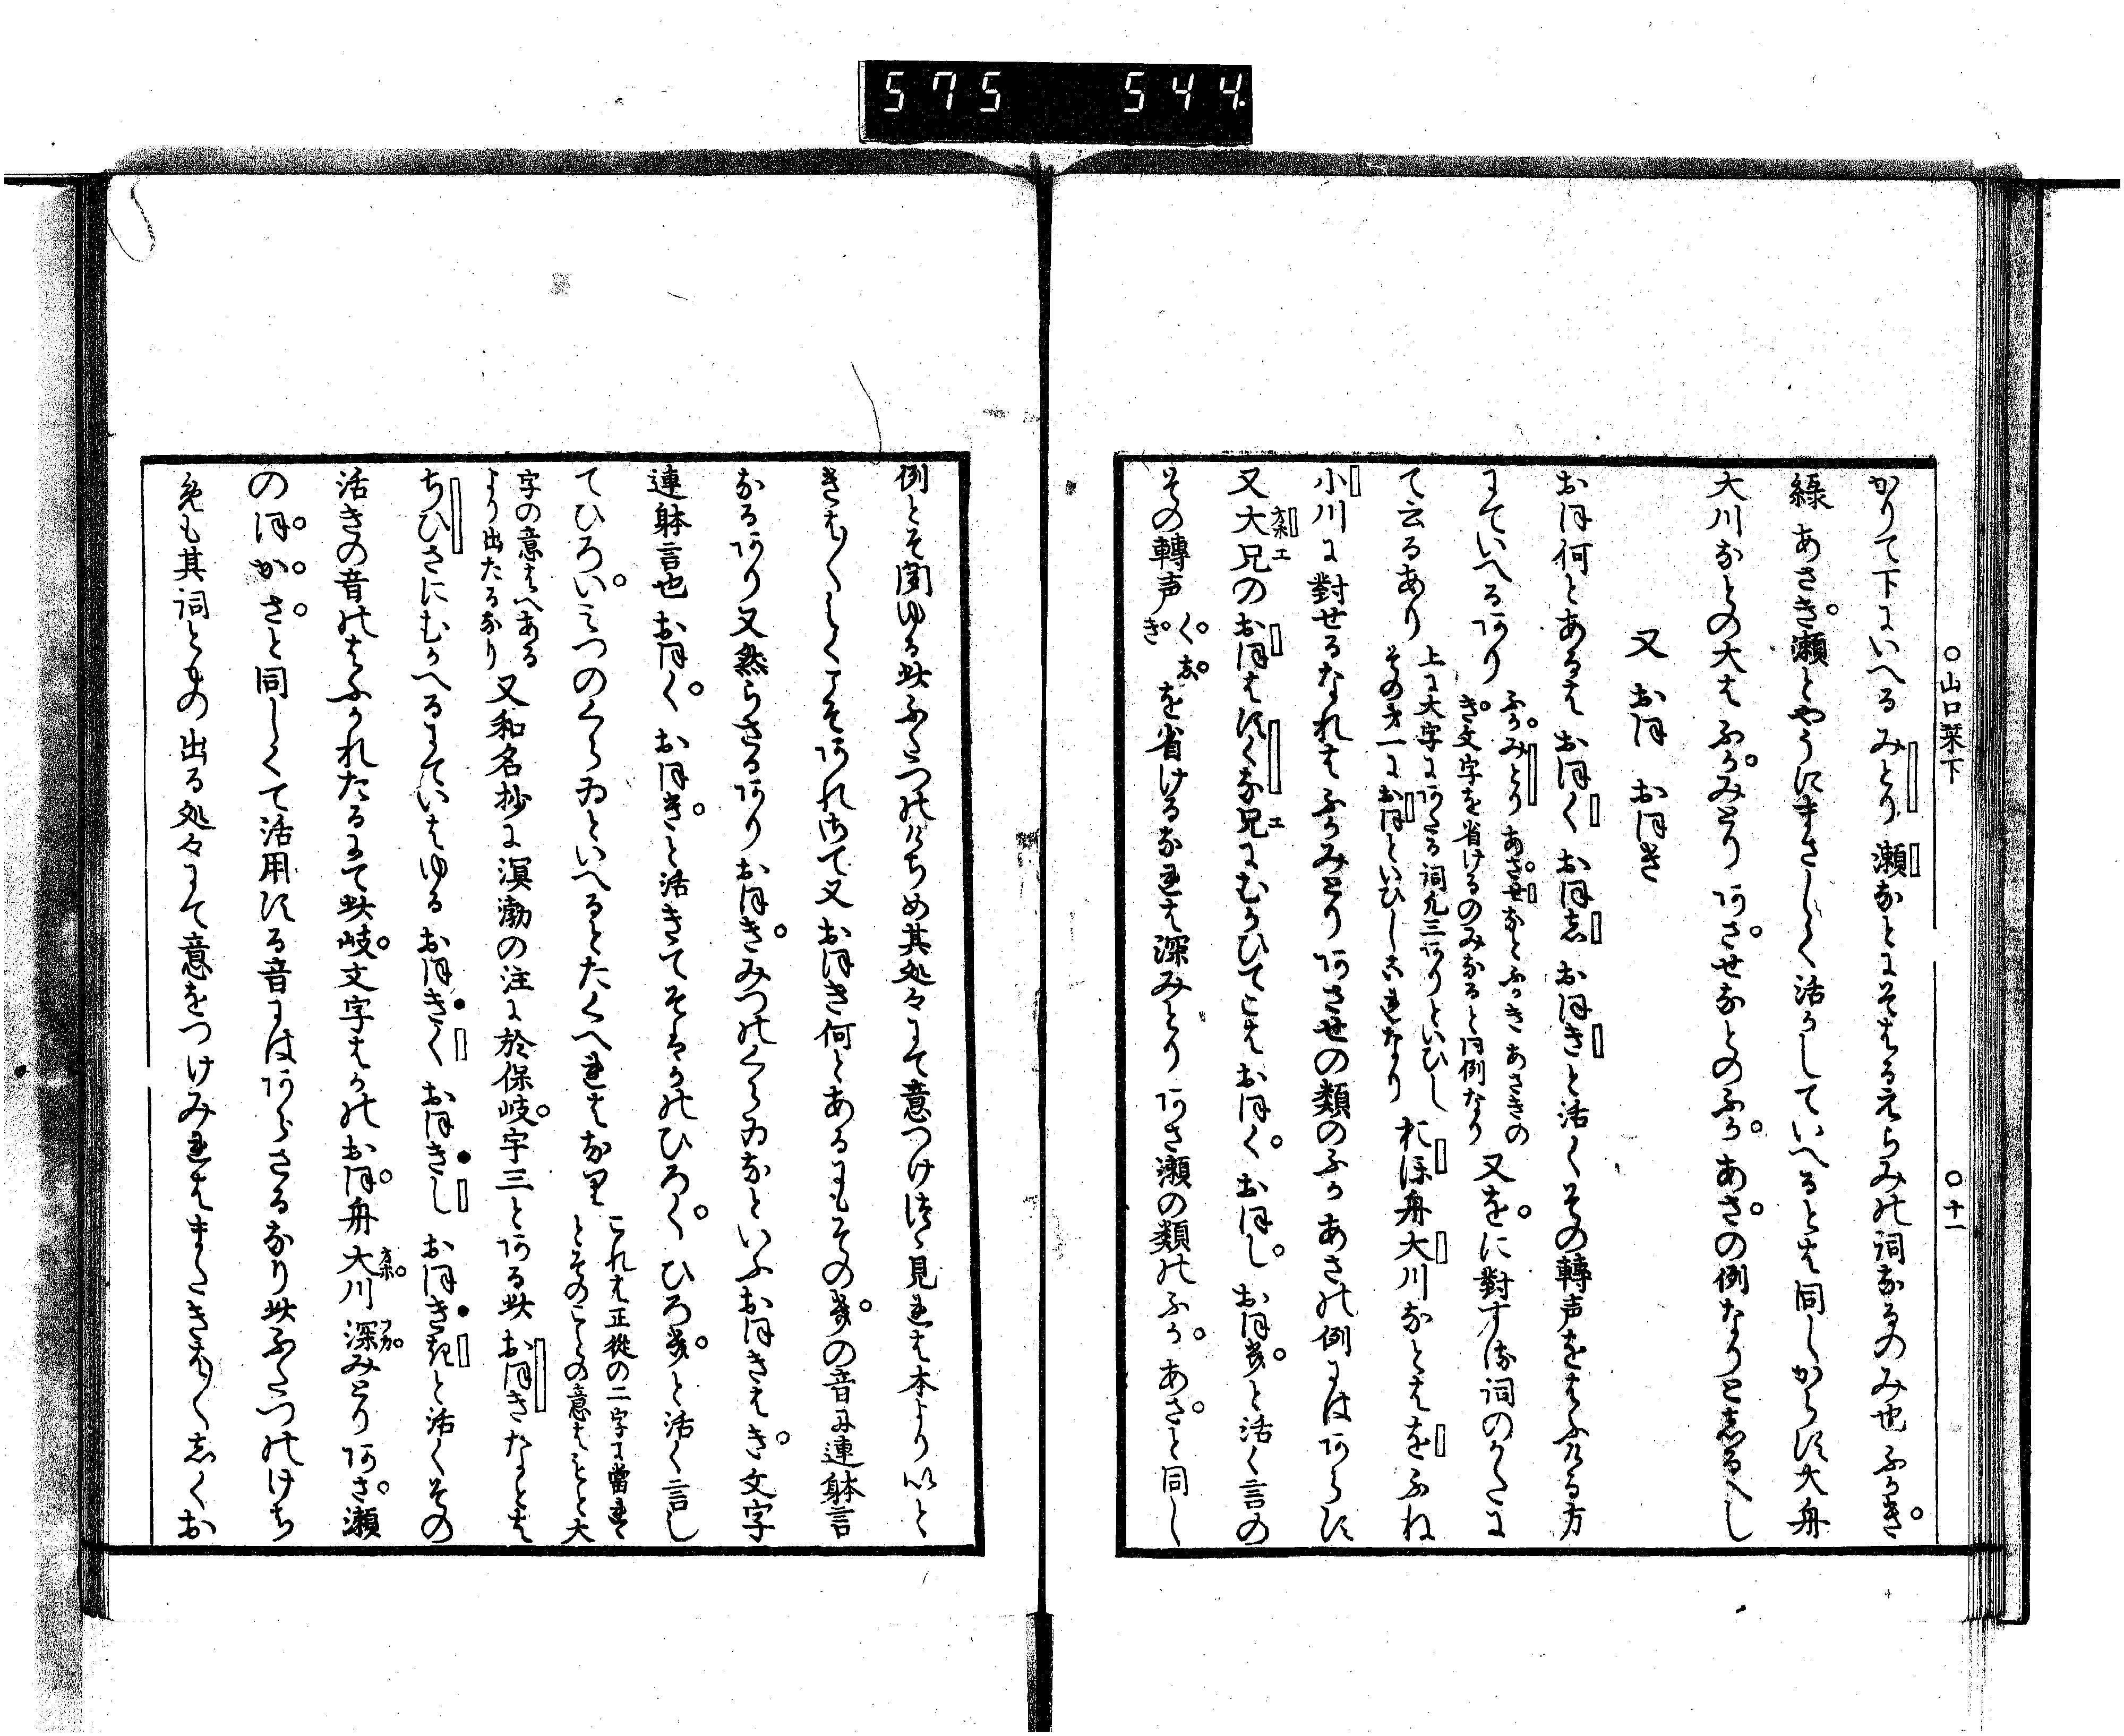 575 544.
○山口栞下
○十一
かりて下にいへるみとり瀬なとにそはるえらみの詞なるのみ也ふかき
緑あさき瀬とやうにまさしく活かしていへるとは同しからす大舟
大川なとの大はふかみとりあさせなとのふかあさの例なりと志るへし
又おほおほき
おほ何とあるはおほくおほ志おほきと活くその轉声をはふける方
にていへるあり
ふかみとりあさせなとふかきあさきの
き文字を省けるのみなると同例なり
又をに對する詞のかたに
て云るあり
上に大字にあたる詞凡三ありといひし
その才一におほといひしこれなり
おほ舟大川なとはをふね
小川に對せるなれはふかみとりあさせの類のふかあさの例にはあらす
又大兄のおほはすくな兄にむかひてこはおほくおほしおほきと活く言の
その轉声
くし
き
を省けるなれは深みとりあさ瀬の類のふかあさと同し
例とそ聞ゆる此ふたつのけちめ其処々にて意つけつゝ見れは本よりいと
きはくしくこそあれさて又おほき何とあるにもそのきの音に連躰言
なるあり又然らさるありおほきみつのくらゐなといふおほきはき文字
連躰言也おほくおほきと活きてそはかのひろくひろきと活く言し
てひろいみつのくらゐといへるとたくへれはなり
これは正從の二字に當れは
とそのことの意はもと大
字の意はへある
より出たるなり
又和名抄に溟渤の注に於保岐宇三とある此おほきなとは
ちひさにむかへるにていはゆるおほきくおほきしおほききと活くその
活きの音のはふかれたるにて此岐文字はかのおほ舟大川深みとりあさ瀬
のほかさと同しくて活用する音にはあらさるなり此ふたつのけち
めも其詞ともの出る処々にて意をつけみれはまたきはくしくお